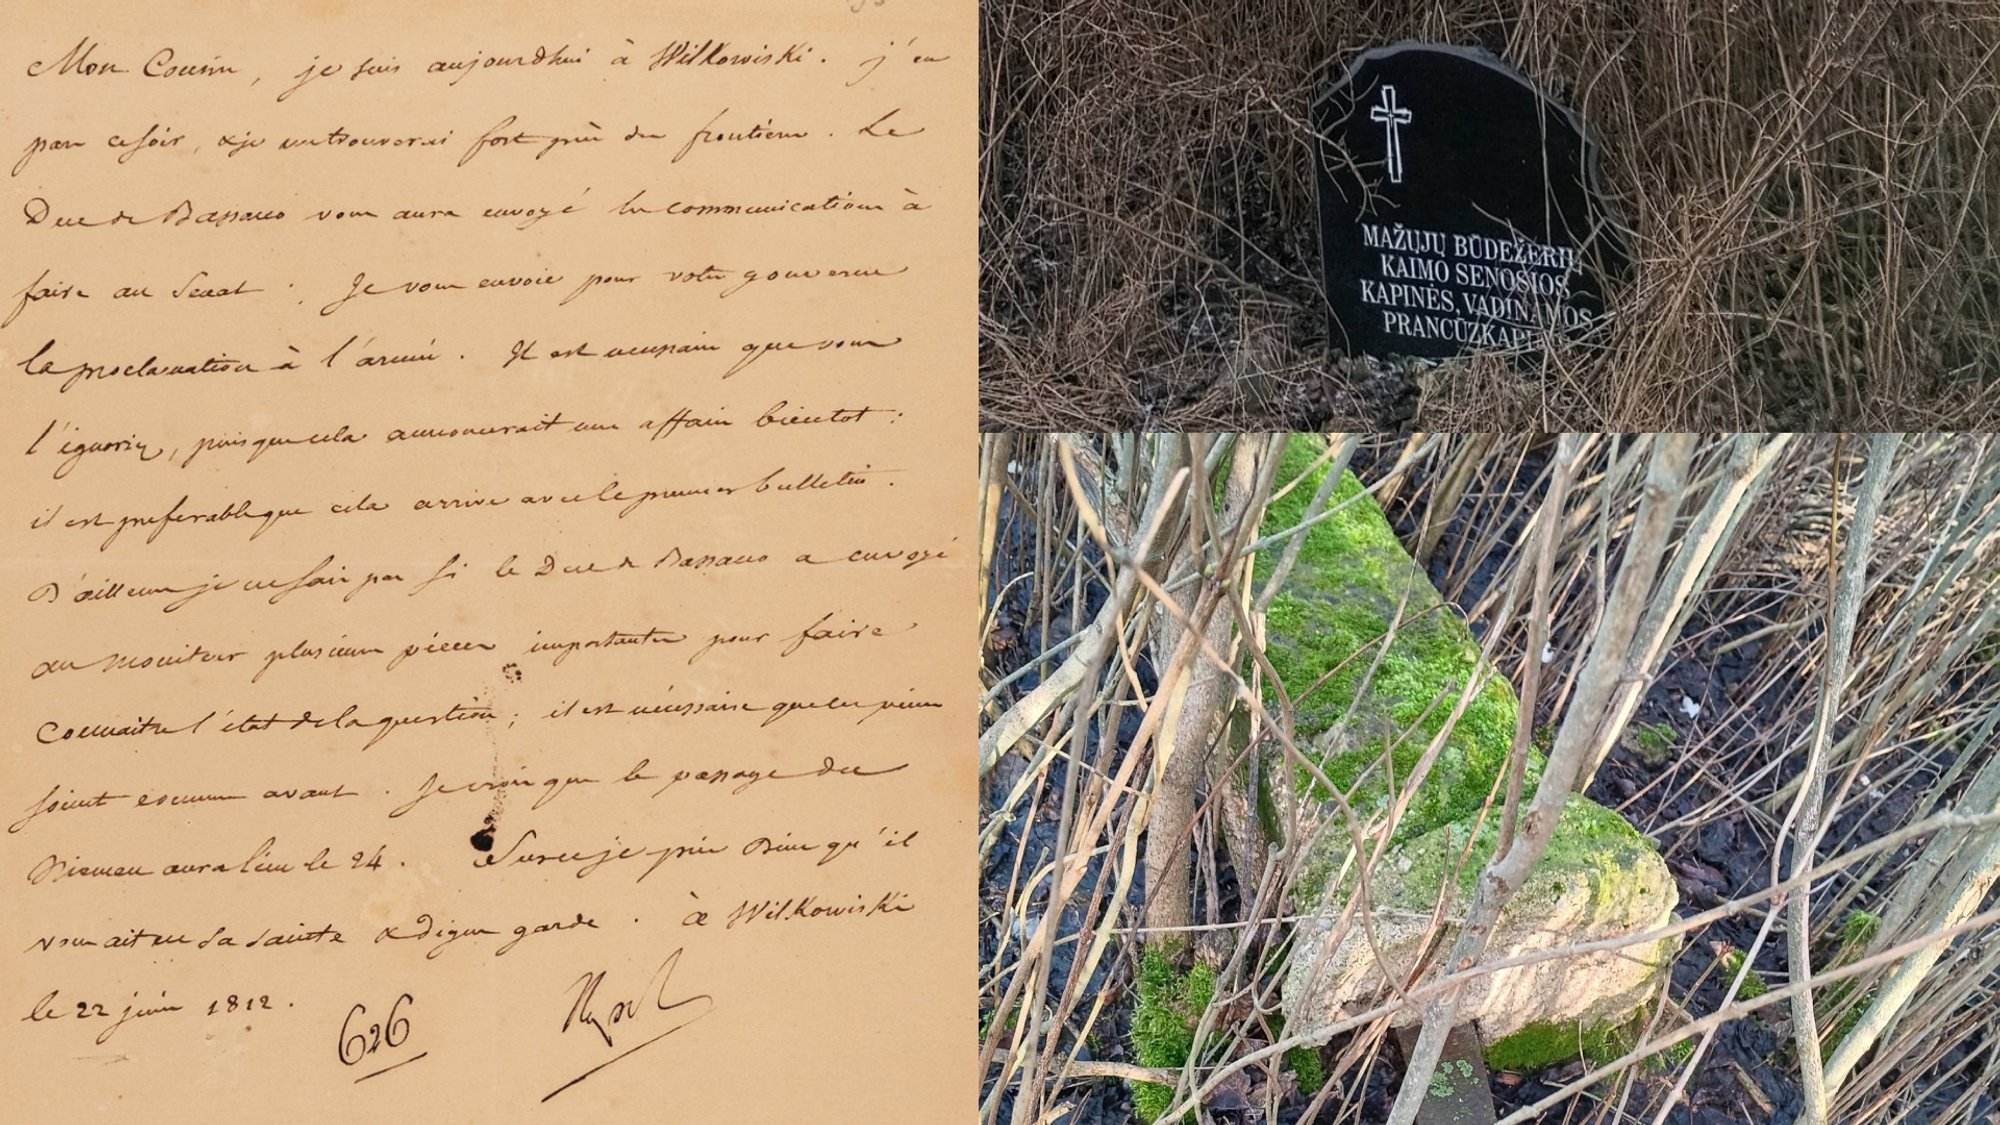 Mon Cousin, je suis aujourdhui à Wilkowiski. j'en
pars ce soir, & je me trouverai fort près des frontières. Le
Duc de Bassano vous aura envoyé les communications à
faire au Senat. Je vous envoie pour votre gouverne
la proclamation à l'armée. Il est necessaire que vous
l'ignoriez, puisque cela annoncerait une affaire bientot:
il est preferable que cela arrive avec le premier bulletin.
D'ailleurs je ne sais pas si le Duc de Bassano a envoyé
au moniteur plusieurs pièces importantes pour faire
connaitre l'état de la question; il est nécessaire que ces pièces
soient connues avant. Je crois que le passage du
Niemen aura lieu le 24. Sur ce je prie Dieu qu'il
vous ait en sa sainte & digne garde. à Wilkowiski
le 22 juin 1812.
626
MAŽŲJŲ BŪDEŽERIŲ
KAIMO SENOSIOS
KAPINĖS, VADINAMOS